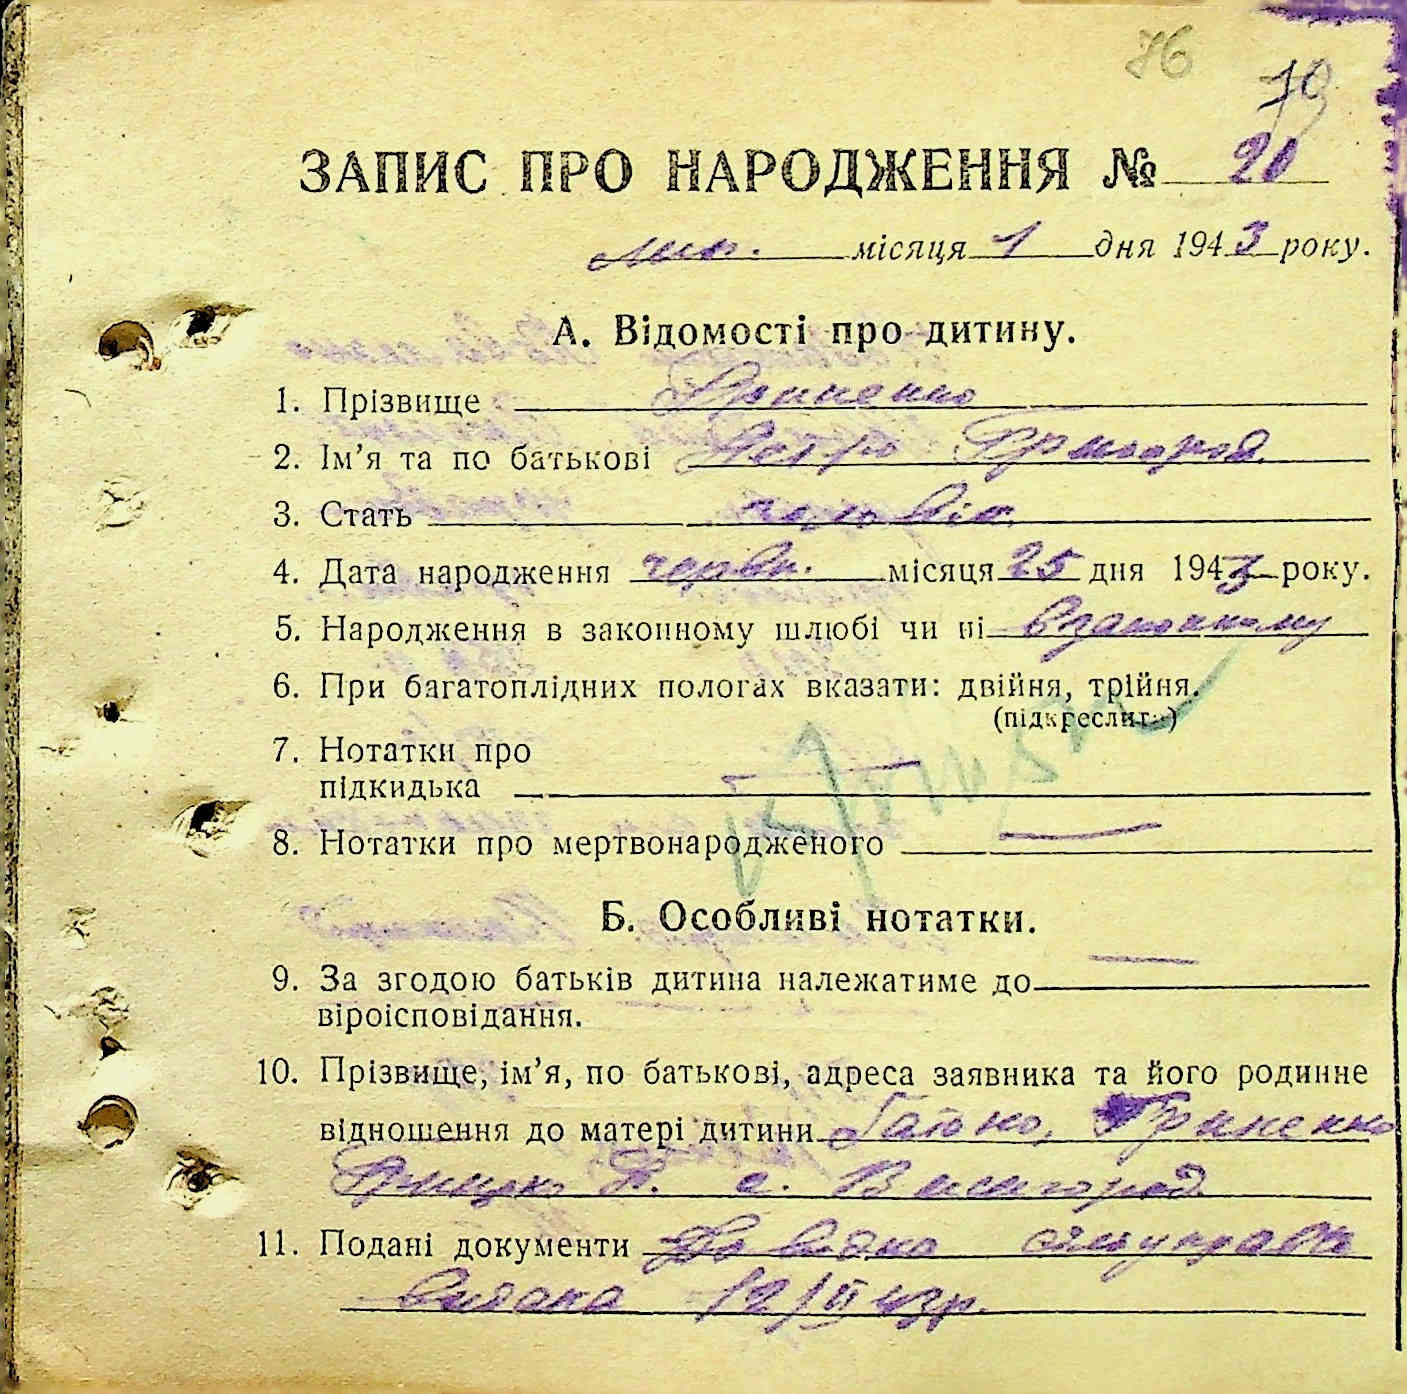 76
79
ЗАПИС ПРО НАРОДЖЕННЯ № 20
лип. місяця 1 дня 1943 року.
А. Відомості про дитину.
1. Прізвище Гриненко
2. Ім’я та по батькові Петро
3. Стать чоловік.
4. Дата народження червн. місяця 25 дня 1943 року.
5. Народження в законному шлюбі чи ні в законному
6. При багатоплідних пологах вказати: двійня, трійня.
(підкреслити)
7. Нотатки про
підкидька —
8. Нотатки про мертвонародженого —
Б. Особливі нотатки.
9. За згодою батьків дитина належатиме до —
віроісповідання.
10. Прізвище, ім’я, по батькові, адреса заявника та його родинне
відношення до матері дитини Батько, Гриненко
с. Вишгород
11. Подані документи Довідка
видана